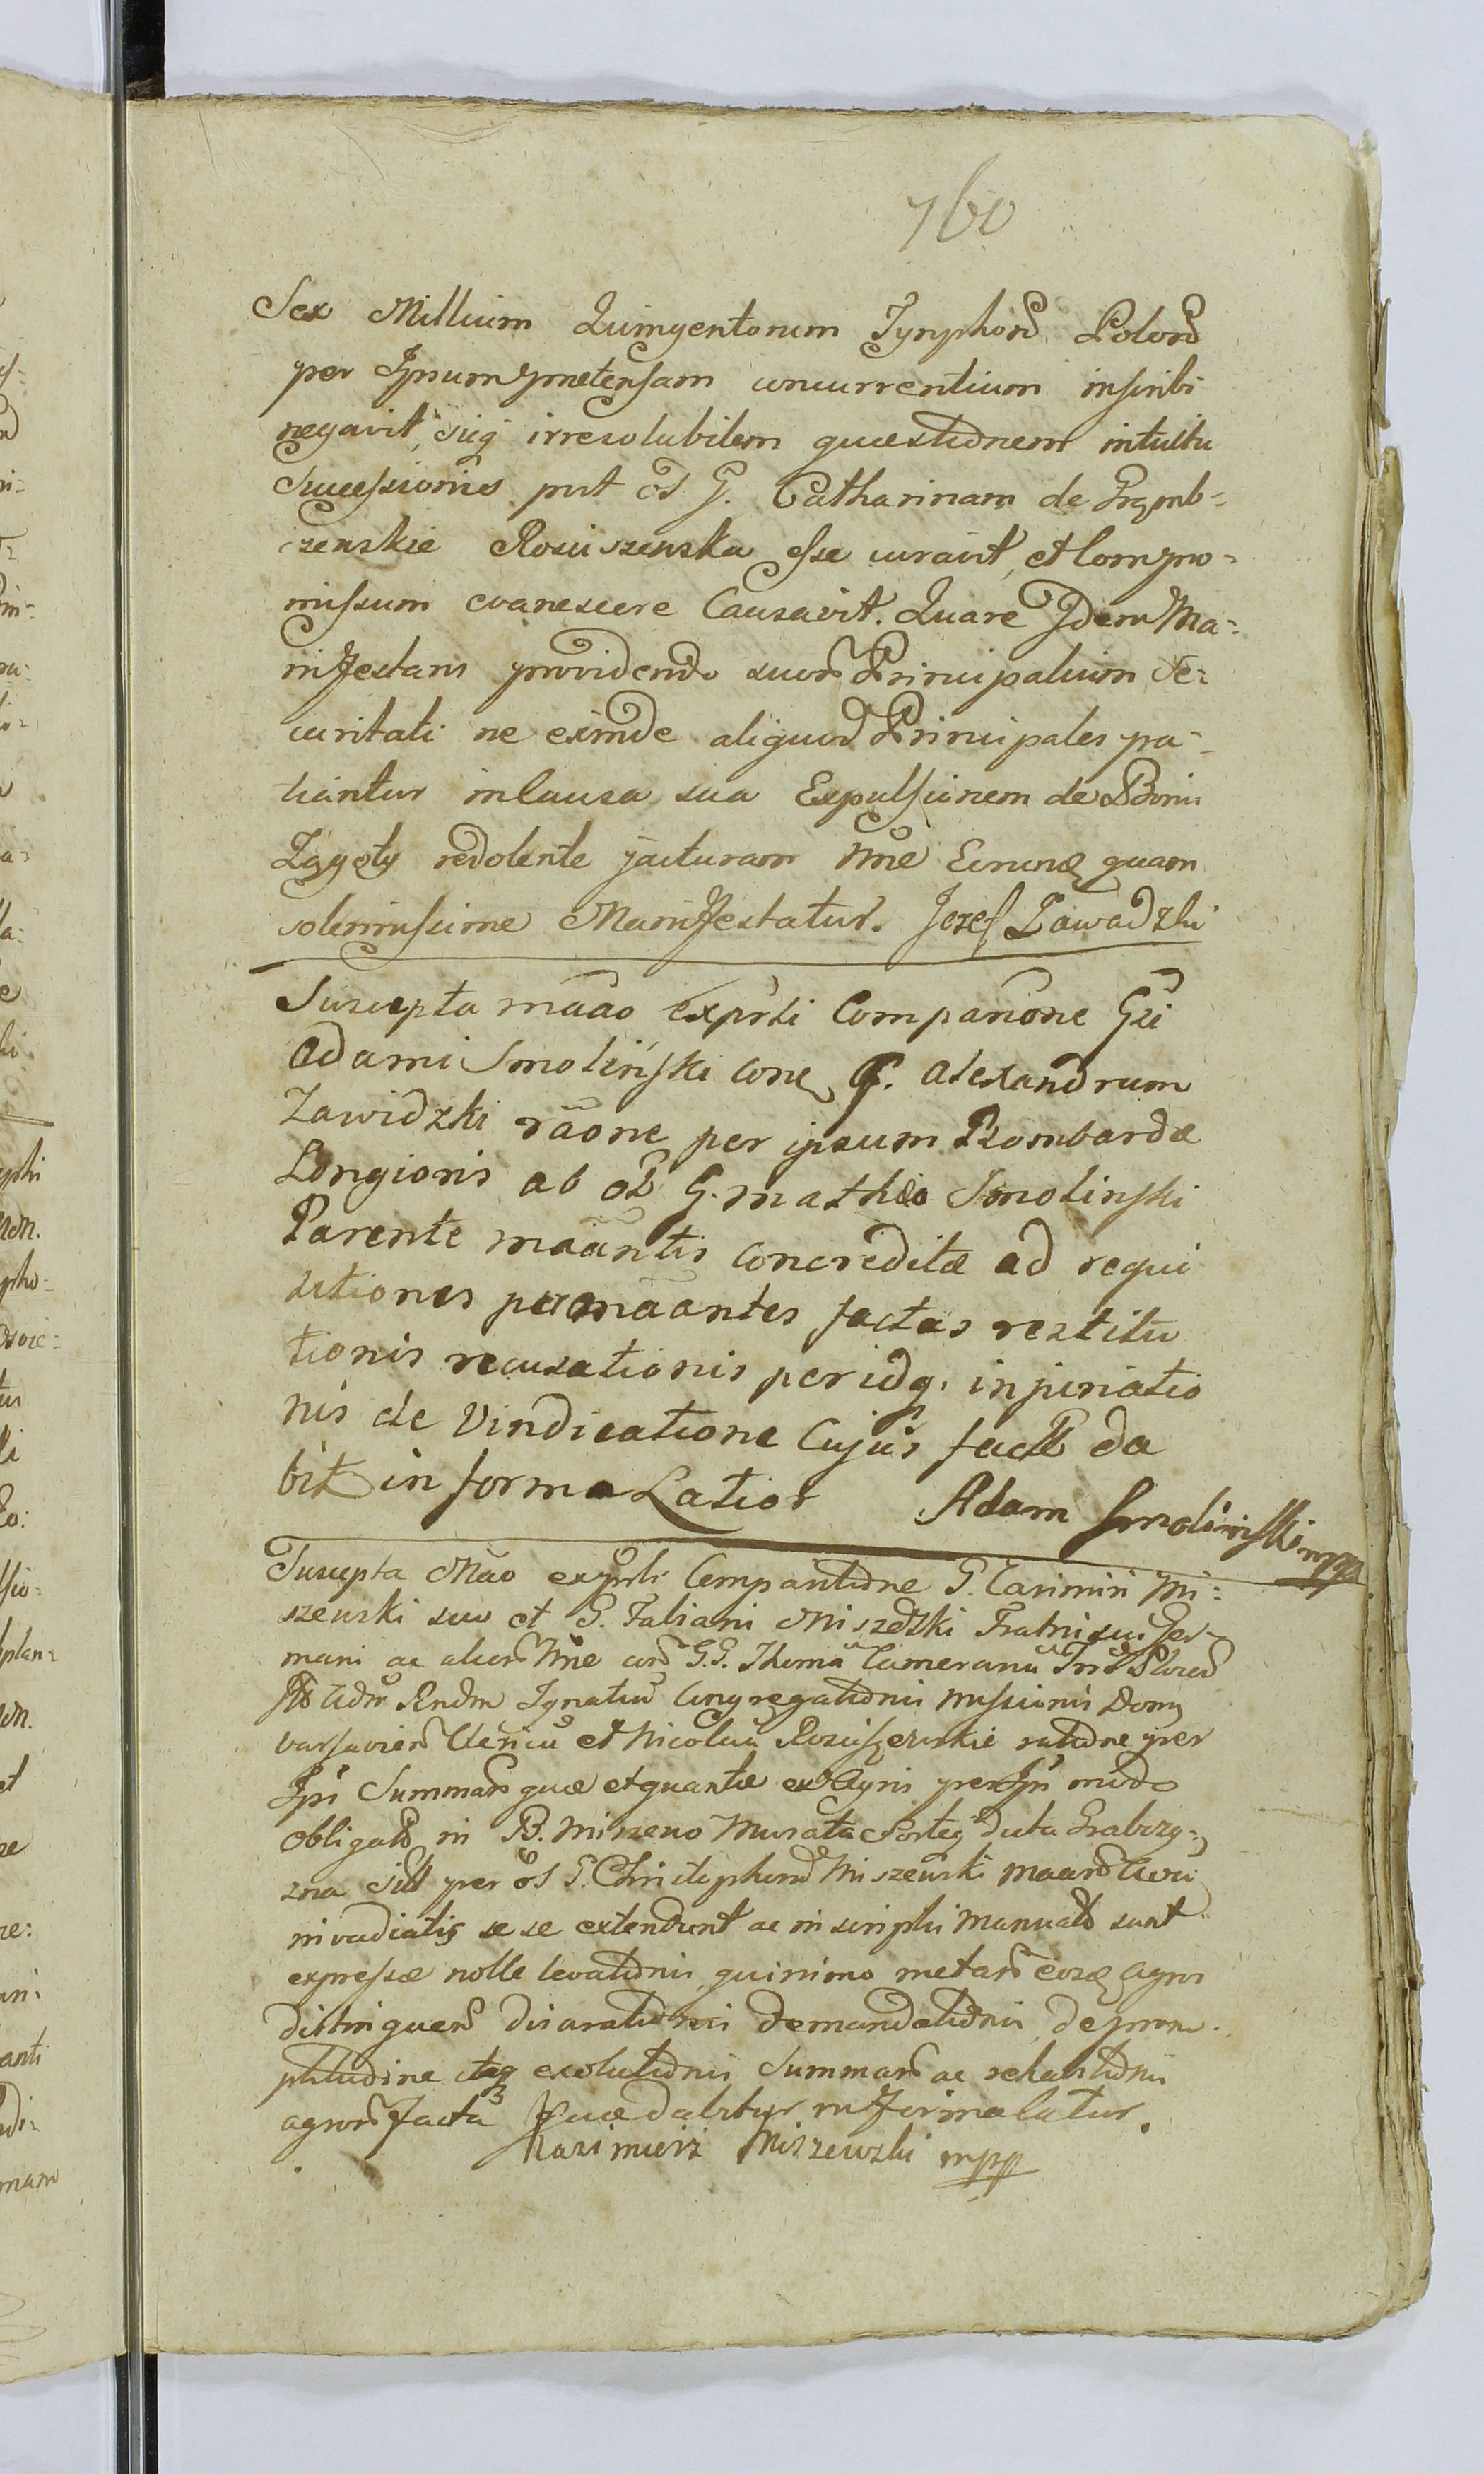 760
Sex Millium Quingentorum Tynphorũ Polorũ
per Ipsum prætensam concurrentium inscribi
negavit, sicq irresolubilem quæstionem intuitu
Successionis post ōl G. Catharinam de Gręmb-
czenskie Rosciszenska esse curavit, et Compro-
missum evanescere Causavit. Quare Idem Ma-
nifestans providendo suorũ Principalium se-
curitati ne exinde aliquod Principales pa-
tiantur in Causa sua Expulsionem de Bonis
Zągoty redolente jacturam nõe Eorumq quam
solennissime Manifestatur. Jozef Zawadzki
Suscepta mããõ exprti Comparitione Gsi
Adami Smoliński cone G. Alexandrum
Zawidzki rãõne per ipsum Bombardæ
Longioris ab ol G. Mathæo Smolinski
Parente mããntis concreditæ ad requi
sitiones per mããntes factas restitu
tionis recusationis per idq. injuriatio
nis de Vindicatione Cujus facto da
bit in forma Latior Adam Smolinski mpp
Suscepta Mão exprti Comparitione G. Casimiri Mi-
szewski suo et G. Fabiani Miszewski Fratris sui Ger-
mani ac aliorũ nõe corã G.G. Thomã Cameranũ Plocen
Ignatiũ Congregationis missionis Domq
varsavien Clericũ et Nicolaũ Rosciszewskie ratione per
Ipš Summarũ quæ et quantæ ex Agris per Ipš modo
obligatis in B. Miszeno Murata Portez dicta Grabczy-
zna sitis per ōl G. Christophorũ Miszewski
invadiatis se se extendunt ac in scripti manuali sunt
expressæ nolle levationis, quinimo metarũ eosq agros
distinguen disarationis demandationis, de prom-
ptitudine itaq exolutionis Summarũ ac relaxationis
agrorũ facta Quæ dabitur in forma latior.
Kazimierz Miszewski mpp